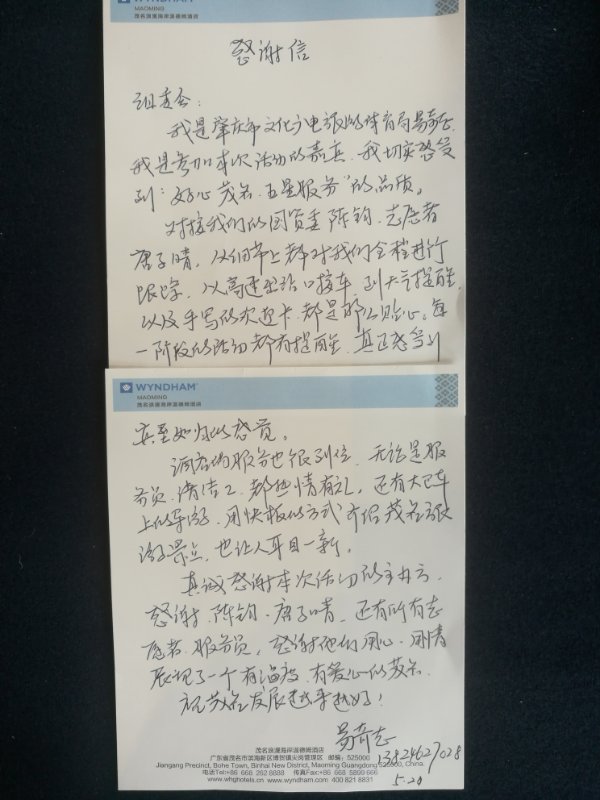 WYNDHAM
MAOMING
茂名浪漫海岸温德姆酒店
感谢信
组委会：
我是肇庆市文化广电旅游体育局易奇志,
我是参加本次活动的嘉宾。我切实感受
到"好心茂名.五星服务"的品质。
对接我们的国资委陈钧、志愿者
唐子晴，从细节上都对我们全程进行
跟踪，从高速出站口接车、到天气提醒
以及手写的欢迎卡.都是那么贴心。每
一阶段的活动都有提醒.真正感受到
WYNDHAM
MAOMING
茂名浪漫海岸温德姆酒店
宾至如归的感觉。
酒店的服务也很到位，无论是服
务员、清洁工、都热情有礼。还有大巴车
上的导游.用快板的方式介绍茂名
游景点，也让人耳目一新。
真诚感谢本次活动的主办方.
感谢.陈钧.唐子晴.还有所有志
愿者、服务员，感谢他们用心、用情
展现了一个有温度.有爱心的茂名.
祝茂名发展越来越好！
易奇志
13824627028
5.20
茂名浪漫海岸温德姆酒店
广东省茂名市滨海新区博贺镇尖岗管理区 邮编：525000
Jiangang Precinct, Bohe Town, Binhai New District, Maoming Guangdong 525000, China
电话Tel:+86 668 262 8888 传真Fax:+86 668 5899 666
www.whghotels.cn www.wyndham.com 400 821 8831